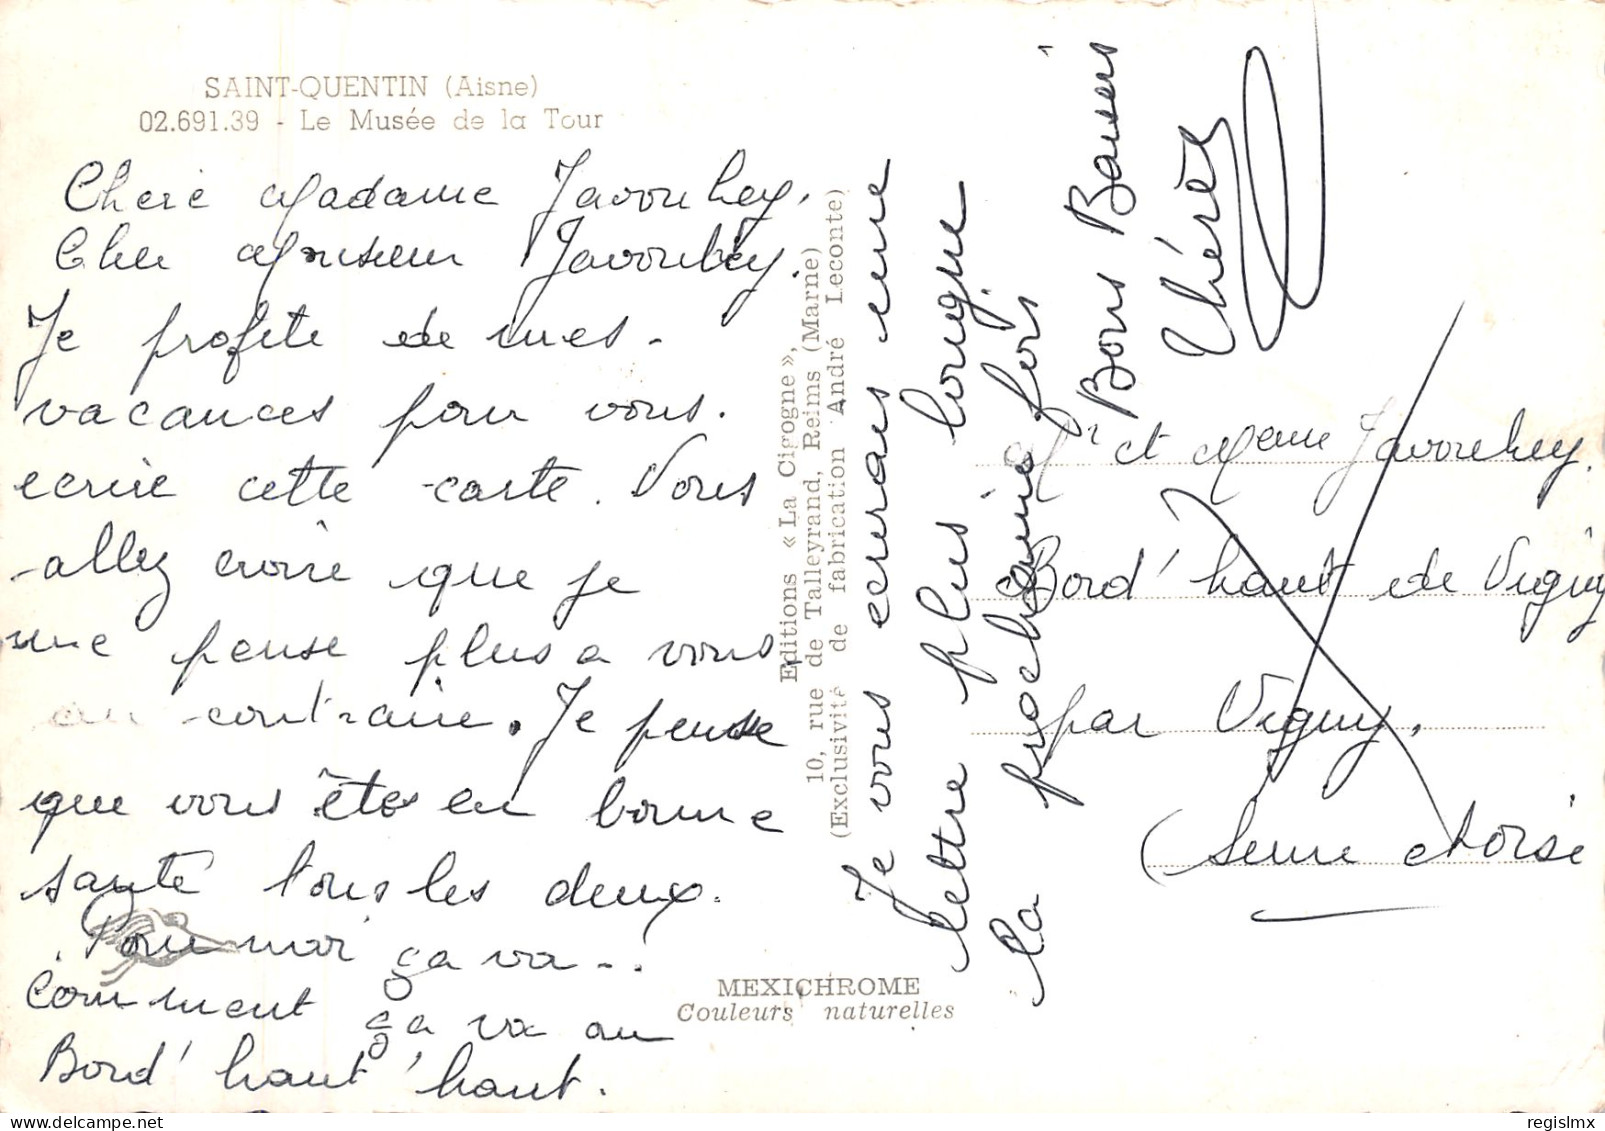 SAINT-QUENTIN (Aisne)
02.691.39 - Le Musée de la Tour
Chere Madame Javouhey.
Cher Monsieur Javouhey.
Je profite de mes
vacances pour vous
ecrire cette carte. Vous
allez croire que je
me pense plus a vous
au contraire. Je pense
que vous êtes en bonne
santé tous les deux.
Pour moi ça va..
Comment ça va au
Bord' haut' haut.
Editions « La Cigogne »,
10, rue de Talleyrand, Reims (Marne)
(Exclusivité de fabrication André Leconte)
MEXICHROME
Couleurs naturelles
Je vous ecrirais une
lettre plus longue
la prochaine fois
Bons Baisers
Thérèse
Mr et Meme Javouhey.
Bord' haut de Vigny
par Vigny.
(Seine et Oise
regislmx